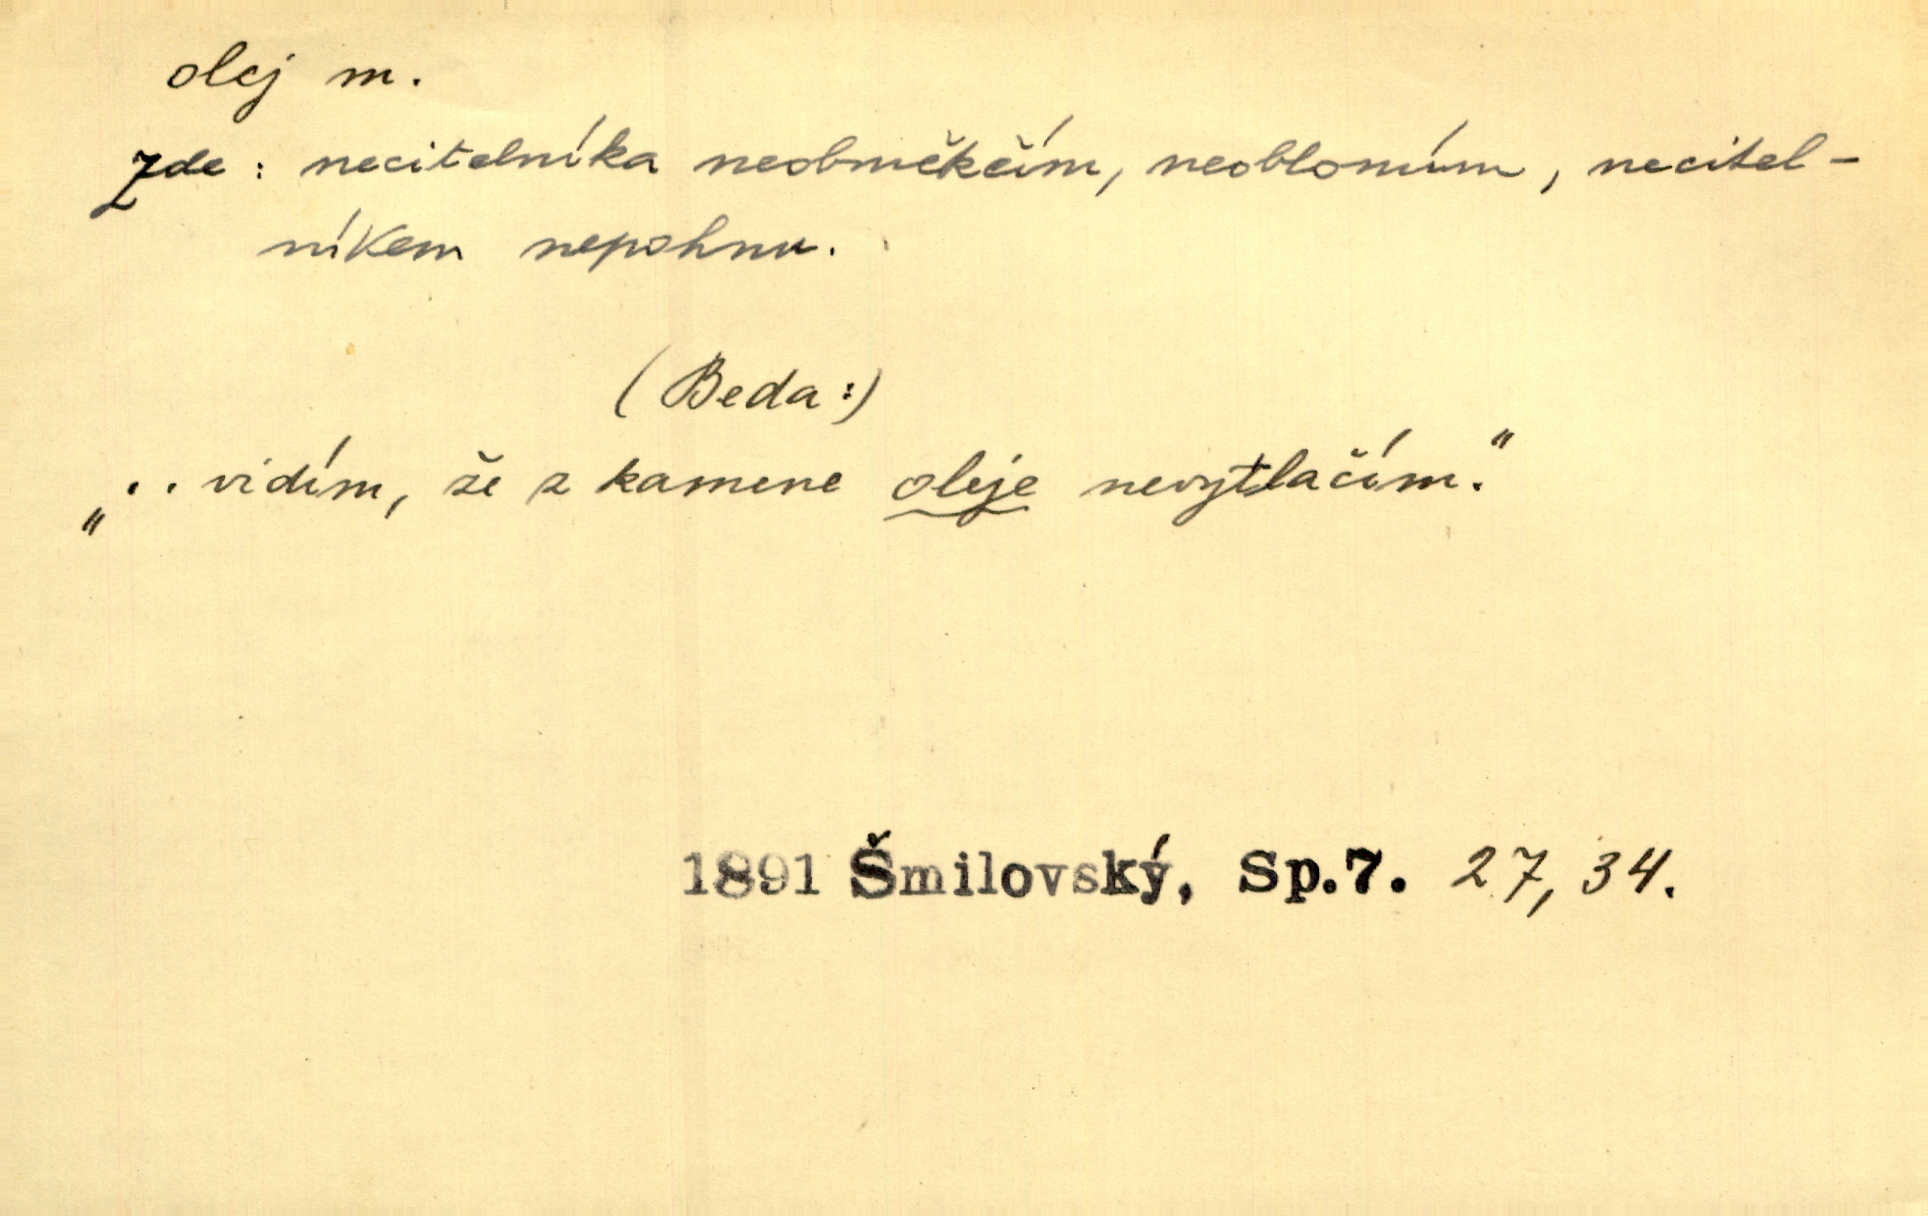 olej m.
Zde: necitelníka neobměkčím, neoblomím, necitel-
níkem nepohnu.
(Beda:)
„.. vidím, že z kamene oleje nevytlačím."
1891 Šmilovský, Sp.7. 27, 34.